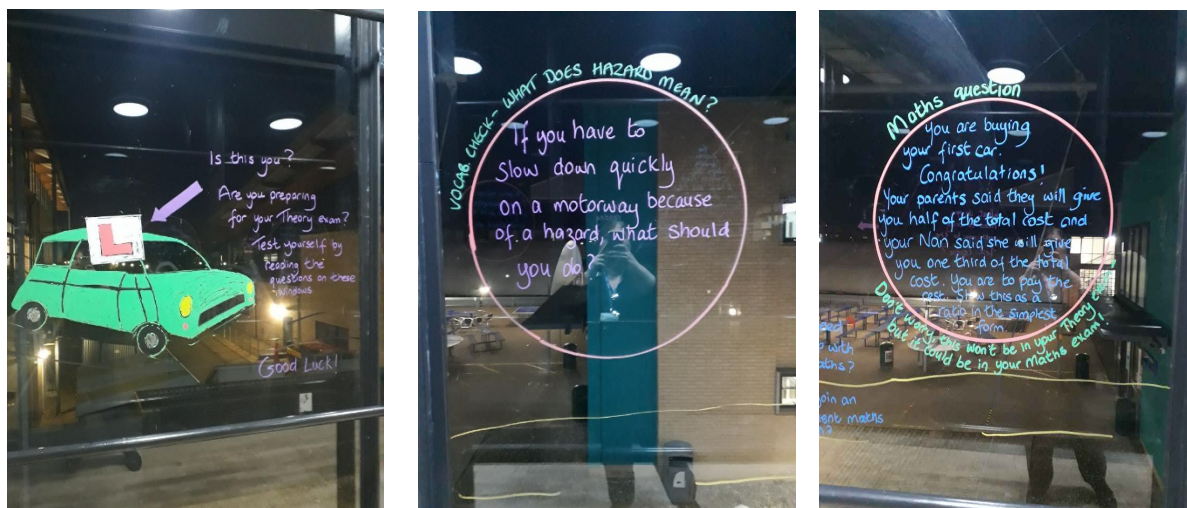 Is this you?
Are you preparing
for your Theory exam?
Test yourself by
reading the
questions on these
windows
Good Luck!
L
VOCAB CHECK - WHAT DOES HAZARD MEAN?
If you have to
Slow down quickly
on a motorway because
of a hazard, what should
you do?
Maths question
you are buying
your first car.
Congratulations!
Your parents said they will give
you half of the total cost and
your Nan said she will give
you one third of the total
cost. You are to pay the
rest. Show this as a
ratio in the simplest
form.
Don't worry, this won't be in your Theory exam,
but it could be in your Maths exam!
with
join an
maths